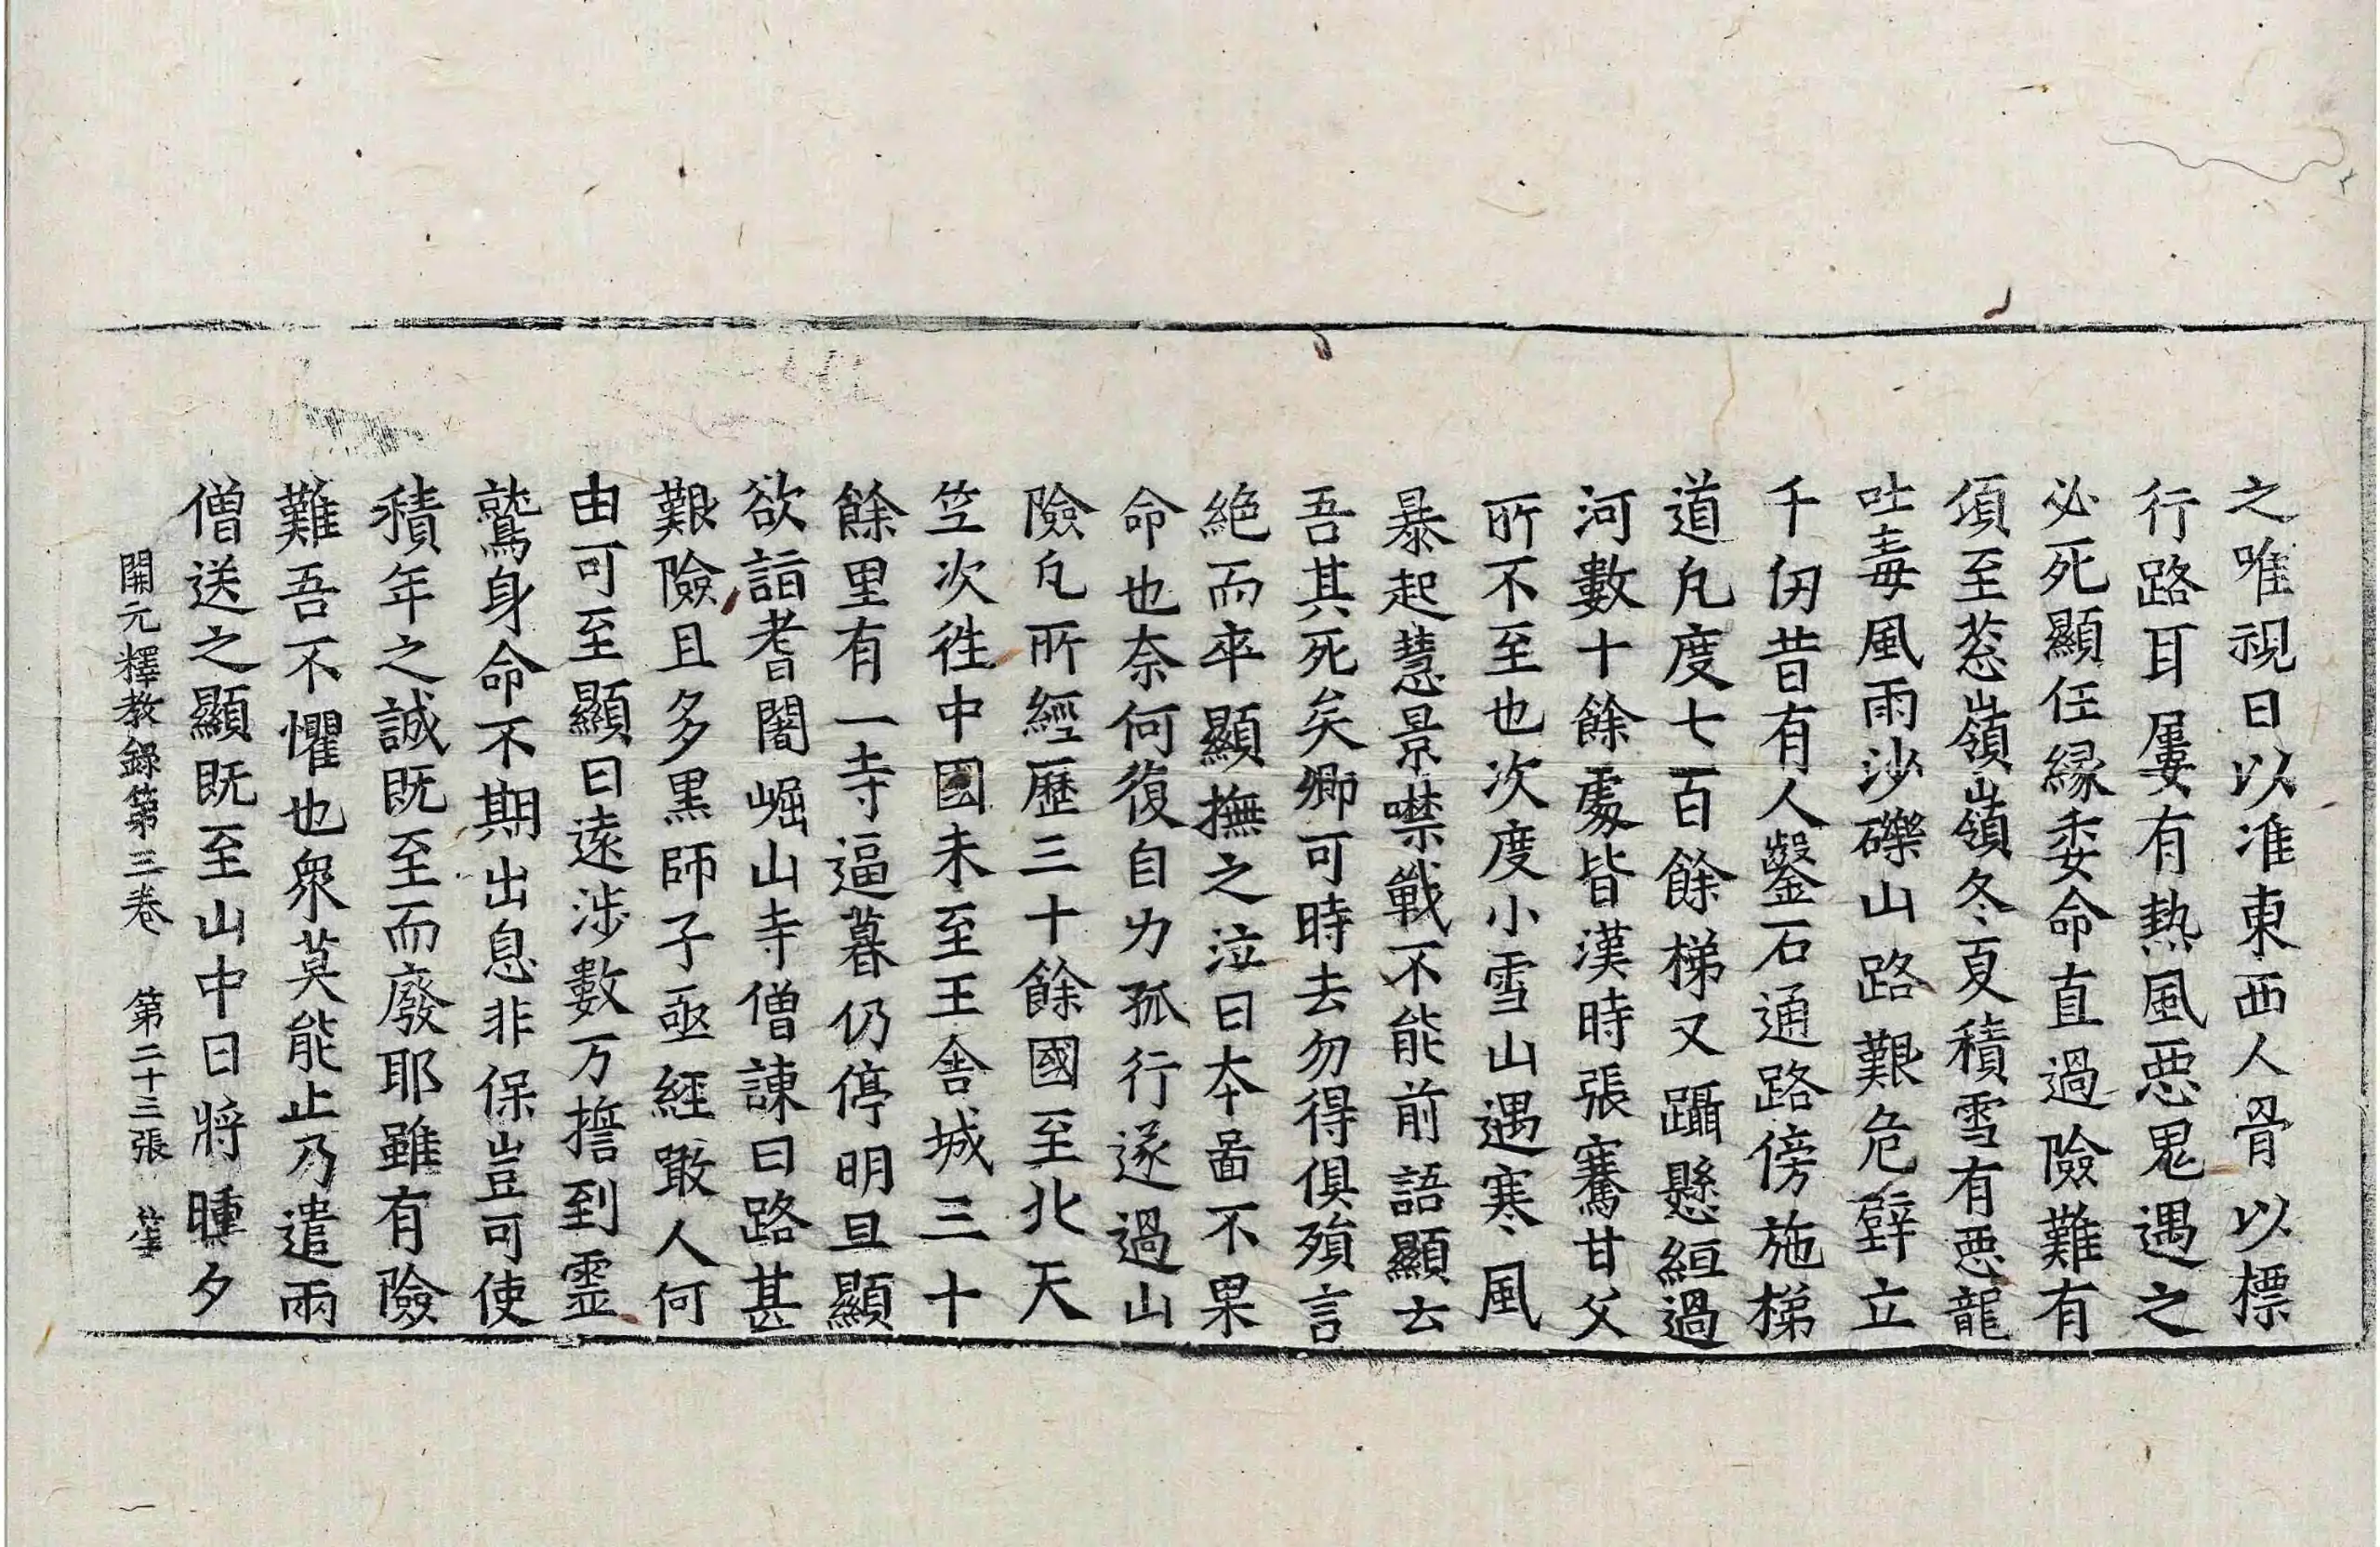 之唯視日以准東西人骨以標
行路耳屢有熱風惡鬼遇之
必死顯任縁委命直過險難有
須至葱嶺嶺冬夏積雪有惡龍
吐毒風雨沙礫山路艱危壁立
千仞昔有人鑿石通路傍施梯
道凡度七百餘梯又躡懸絙過
河數十餘處皆漢時張騫甘父
所不至也次度小雪山遇寒風
暴起慧景噤戰不能前語顯去
吾其死矣卿可時去勿得俱殞言
絶而卒顯撫之泣曰本啚不果
命也奈何復自力孤行遂過山
險凡所經歷三十餘國至北天
竺次徃中國未至王舍城三十
餘里有一寺逼暮仍停明旦顯
欲詣耆闍崛山寺僧諫曰路甚
艱險且多黒師子亟經噉人何
由可至顯曰遠涉數万擔到霊
鷲身命不期出息非保豈可使
積年之誠既至而廢耶雖有險
難吾不懼也衆莫能止乃遣兩
僧送之顯既至山中日將曛夕
開元釋教録第三卷 第二十三張 笙